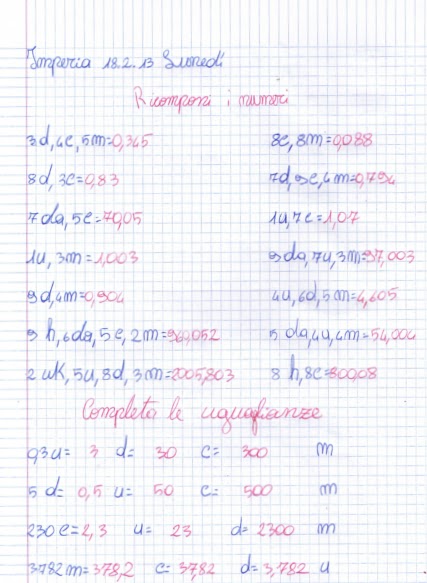 Imperia 18.2.13 Lunedì
Ricomponi i numeri
3d, 4c, 5m=0,345 8c, 8m=0,088
8d, 3c=0,83 7d, 9c, 4m=0,794
7da, 5c=70,05 1u, 7c=1,07
1u, 3m=1,003 9da, 7u, 3m=97,003
9d, 4m=0,904 4u, 6d, 5m=4,605
9h, 6da, 5c, 2m=960,052 5da, 4u, 4m=54,004
2uk, 5u, 8d, 3m=2005,803 8h, 8c=800,08
Completa le uguaglianze
0,3u= 3 d= 30 c= 300 m
5 d= 0,5 u= 50 c= 500 m
230c=2,3 u= 23 d= 2300 m
3782m=378,2 c=37,82 d=3,782 u